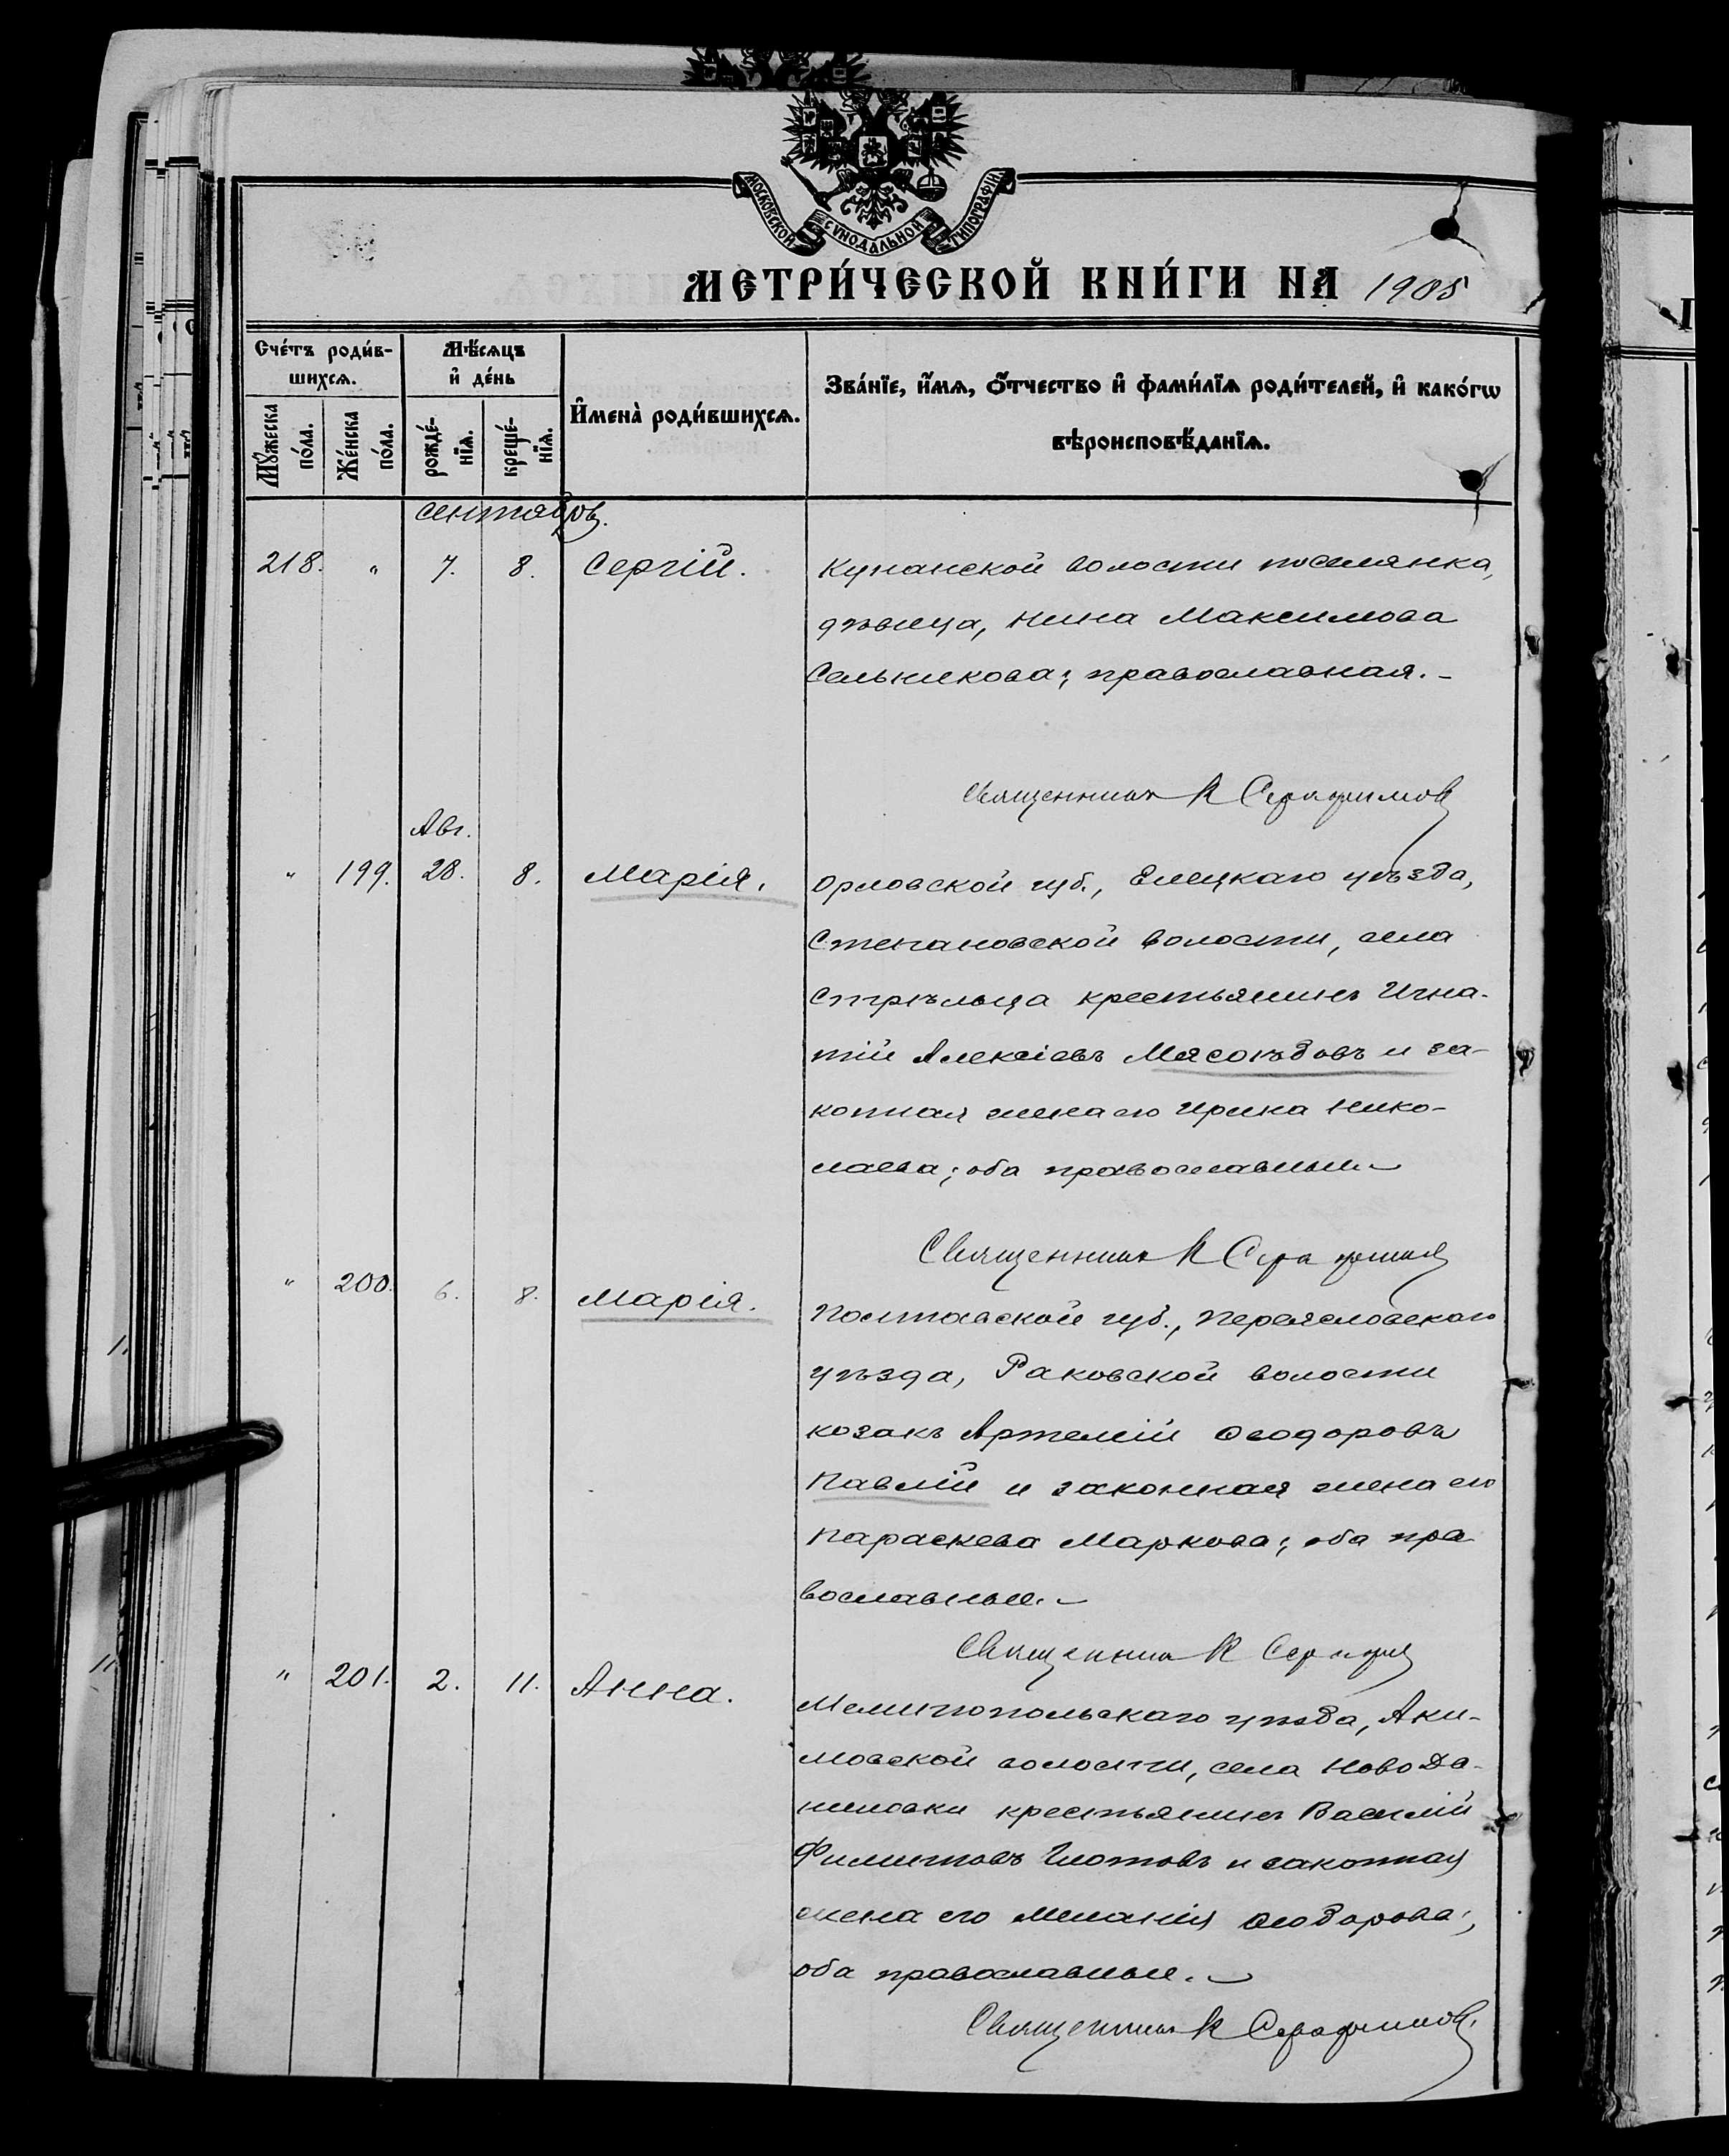 МОСКОВСКОЙ СѴНОДАЛЬНОЙ ТИПОГРАФІИ
МЕТРИ́ЧЕСКОЙ КНИ́ГИ НА 1905
Сче́тъ роди́в-
шихсѧ.
Мꙋ́жеска
по́ла.
Же́нска
по́ла.
Мѣ́сѧцъ
и҆ де́нь
рожде́-
нїѧ.
креще́-
нїѧ.
И҆мена̀ роди́вшихсѧ.
Зва́нїе, и҆́мѧ, ѻ҆́тчество и҆ фами́лїѧ роди́телей, и҆ како́гѡ
вѣроисповѣ́данїѧ.
сентябрь.
218. " 7. 8. Сергій.
Куманской волости поселянка,
дѣвица, Нина Максимова
Сельникова; православная.-
Священникъ К Серафимовъ
Авг.
" 199. 28. 8. Марія.
Орловской губ., Елецкаго уѣзда,
Степановской волости, села
Стрѣльца крестьянинъ Игна-
тій Алексіевъ Мясоѣдовъ и за-
конная жена его Ирина Нико-
лаева; оба православные.-
Священникъ К Серафимовъ
" 200. 6. 8. Марія.
Полтавской губ., Переясловскаго
уѣзда, Раковской волости
козакъ Артемій Ѳеодоровъ
Павлій и законная жена его
Параскева Маркова; оба пра
вославные.-
Священникъ К Серафимовъ
" 201. 2. 11. Анна.
Мелитопольскаго уѣзда, Аки-
мовской волости, села Ново Да-
ниловки крестьянинъ Василій
Филиповъ Глотовъ и законная
жена его Меланія Ѳеодорова;
оба православные.-
Священникъ К Серафимовъ.